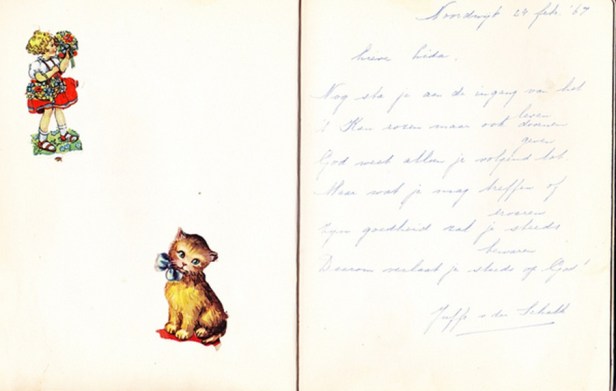 Noordwijk 24 feb. '67
Lieve Lida,
Nog sta je aan de ingang van het
leven
't Kan rozen maar ook doornen
geven
God weet alleen je volgend lot
Maar wat je mag treffen of
ervaren
Zijn goedheid zal je steeds
bewaren
Daarom verlaat je steeds op God!
Juff. v. der Schalk